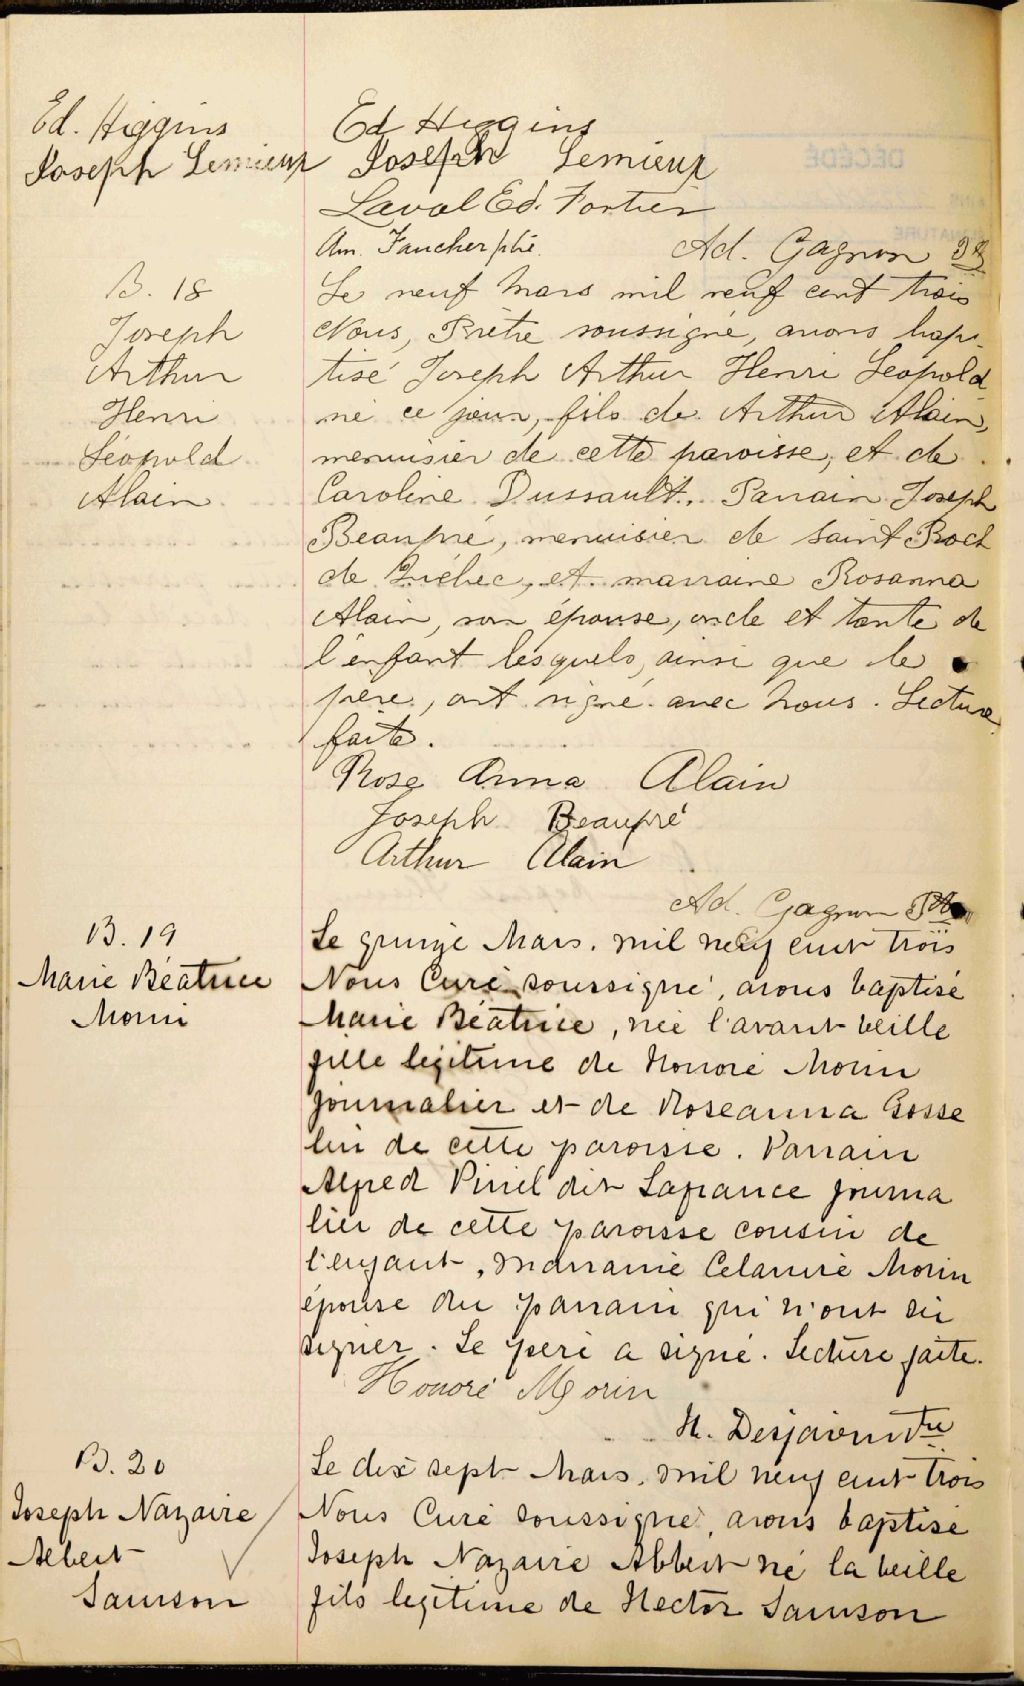 Ed. Higgins
Joseph Lemieux
Ed Higgins
Joseph Lemieux
Laval Ed. Fortier
Am. Faucher ptre.
Ad. Gagnon Ptre
B. 18
Joseph
Arthur
Henri
Léopold
Alain
Le neuf Mars mil neuf cent trois
Nous, Prêtre soussigné, avons bap-
tisé Joseph Arthur Henri Léopold
né ce jour, fils de Arthur Alain,
menuisier de cette paroisse, et de
Caroline Dussault. Parrain Joseph
Beaupré, menuisier de Saint Roch
de Québec, et marraine Rosanna
Alain, son épouse, oncle et tante de
l'enfant lesquels, ainsi que le
père, ont signé avec nous. Lecture
faite.
Rose Anna Alain
Joseph Beaupré
Arthur Alain
Ad. Gagnon Ptre
B. 19
Marie Béatrice
Morin
Le quinze Mars, mil neuf cent trois
Nous Curé soussigné, avons baptisé
Marie Béatrice, née l'avant veille
fille légitime de Honoré Morin
journalier et de Roseanna Gosse
lin de cette paroisse. Parrain
Alfred Pinel dit Lafrance journa
lier de cette paroisse cousin de
l'enfant, marraine Celanire Morin
épouse du parrain qui n'ont su
signer. Le père a signé. Lecture faite.
Honoré Morin
H. Desjardins Ptre
B. 20
Joseph Nazaire
Albert
Samson
Le dix sept Mars, mil neuf cent trois
Nous Curé soussigné, avons baptisé
Joseph Nazaire Albbert né la veille
fils légitime de Hector Samson
DÉCÉDÉ